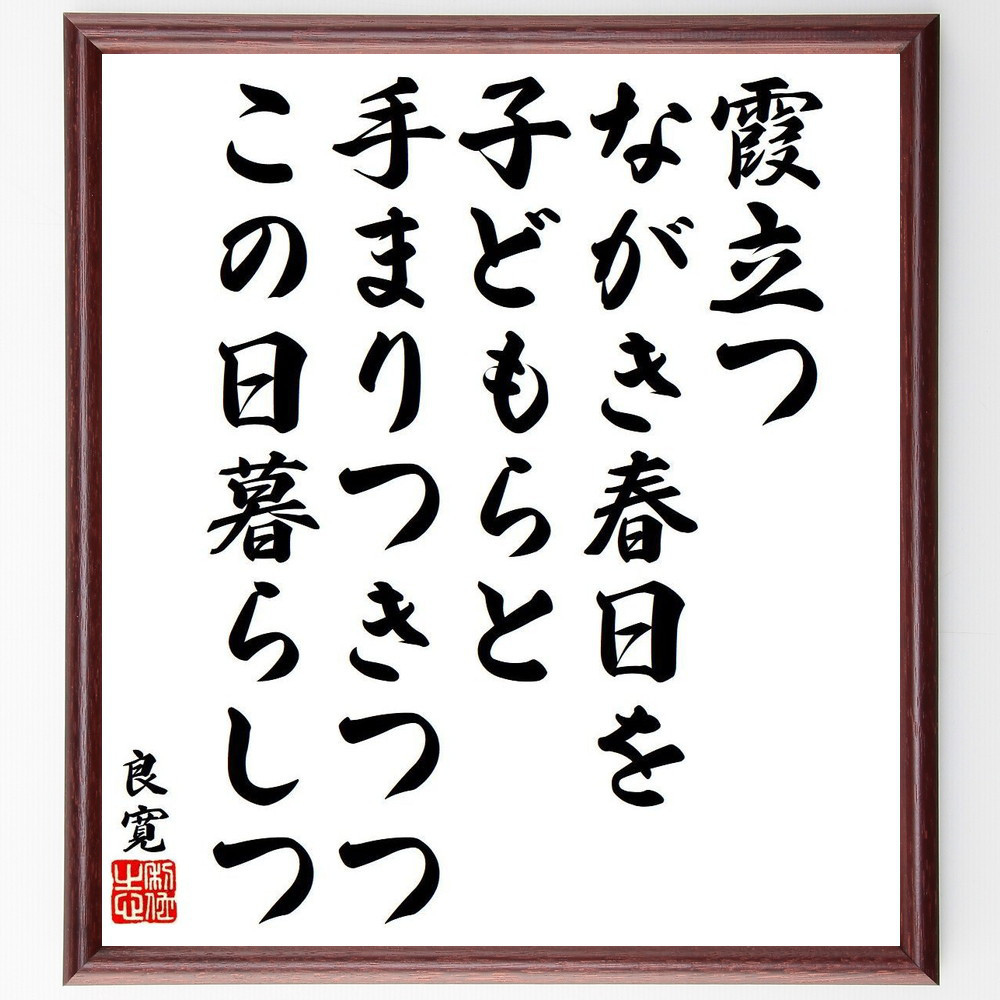 霞立つ
ながき春日を
子どもらと
手まりつきつつ
この日暮らしつ
良寛